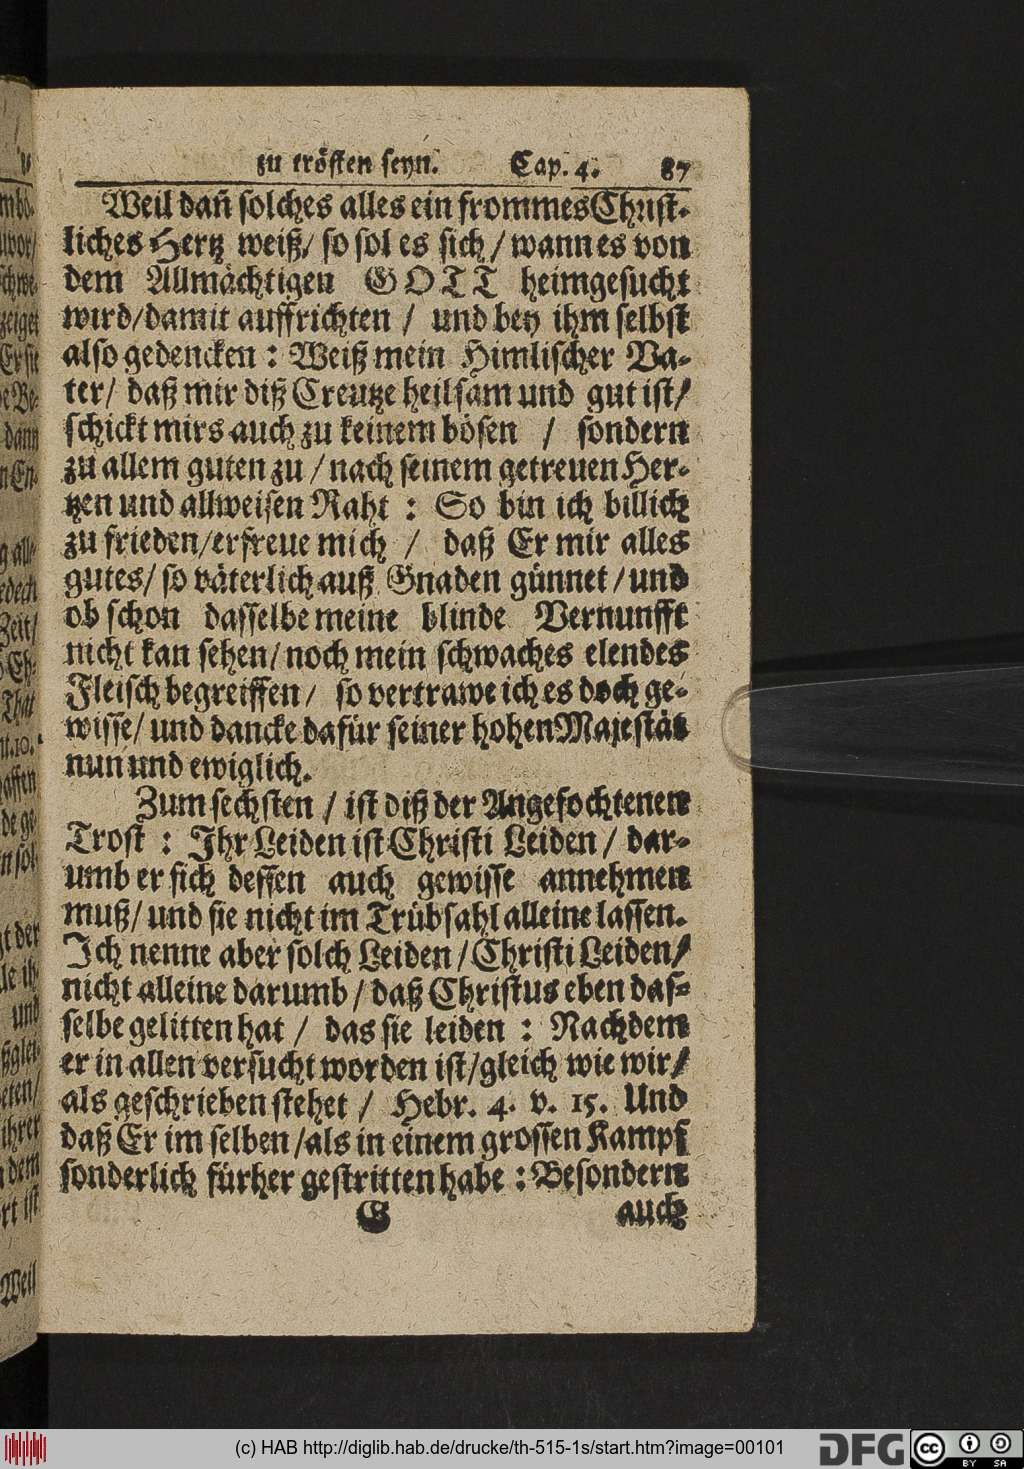 zu trösten seyn. Cap. 4. 87
Weil dañ solches alles ein frommes Christ-
liches Hertz weiß/ so sol es sich / wann es von
dem Allmächtigen GOTT heimgesucht
wird/damit auffrichten / und bey ihm selbst
also gedencken : Weiß mein Himlischer Va-
ter/ daß mir diß Creutze heilsam und gut ist/
schickt mirs auch zu keinem bösen / sondern
zu allem guten zu / nach seinem getreuen Her-
tzen und allweisen Raht : So bin ich billich
zu frieden/erfreue mich / daß Er mir alles
gutes/ so väterlich auß Gnaden günnet / und
ob schon dasselbe meine blinde Vernunfft
nicht kan sehen/ noch mein schwaches elendes
Fleisch begreiffen/ so vertrawe ich es doch ge-
wisse/ und dancke dafür seiner hohen Majestät
nun und ewiglich.
Zum sechsten / ist diß der Angefochtenen
Trost : Ihr Leiden ist Christi Leiden / dar-
umb er sich dessen auch gewisse annehmen
muß/ und sie nicht im Trübsahl alleine lassen.
Ich nenne aber solch Leiden / Christi Leiden/
nicht alleine darumb / daß Christus eben das-
selbe gelitten hat / das sie leiden : Nachdem
er in allen versucht worden ist/gleich wie wir/
als geschrieben stehet / Hebr. 4. v. 15. Und
daß Er im selben /als in einem grossen Kampf
sonderlich fürher gestritten habe : Besondern
G auch
Weil
(c) HAB http://diglib.hab.de/drucke/th-515-1s/start.htm?image=00101
DFG
cc BY SA